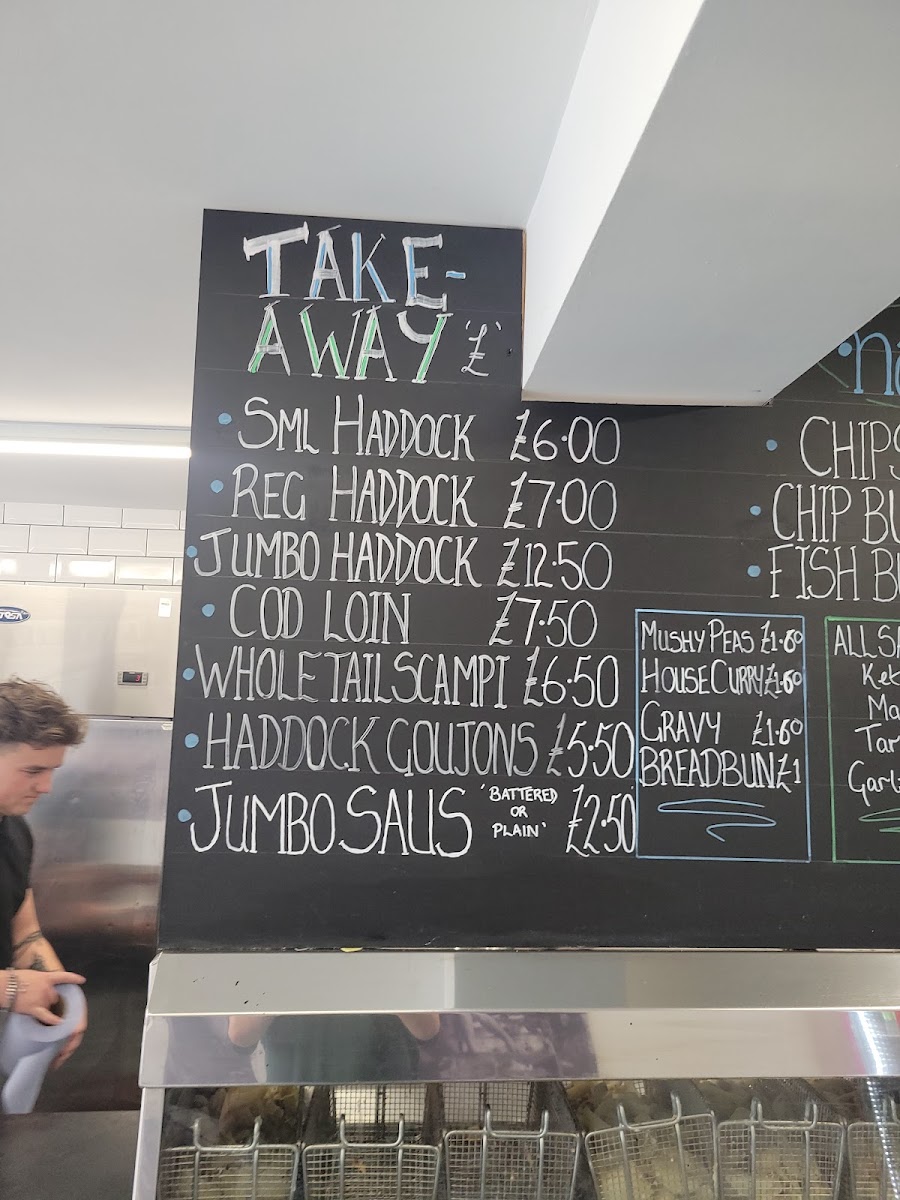 TAKE-
AWAY '£'
• SML HADDOCK £6.00
• REG HADDOCK £7.00
• JUMBO HADDOCK £12.50
• COD LOIN £7.50
• WHOLETAIL SCAMPI £6.50
• HADDOCK GOUJONS £5.50
• JUMBO SAUS 'BATTERED OR PLAIN' £2.50
MUSHY PEAS £1.60
HOUSE CURRY £1.60
GRAVY £1.60
BREADBUN £1
• CHIPS
• CHIP BU
• FISH BU
ALL SA
Ket
Ma
Tar
Garl